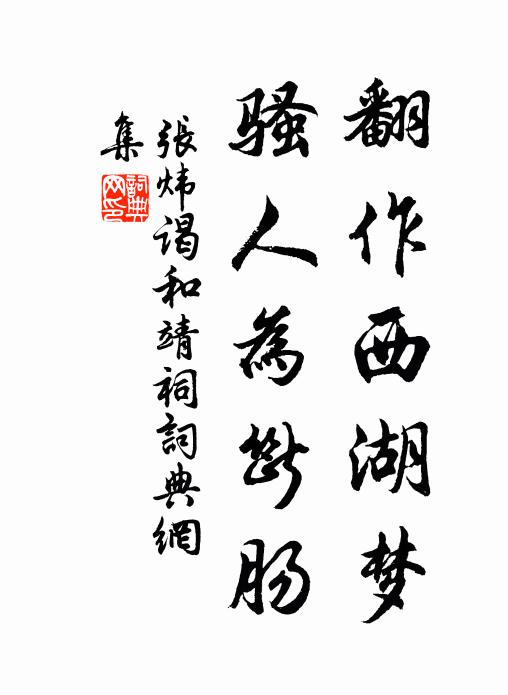 翻作西湖梦
骚人為斷肠
張炜谒和靖祠詞典網
集
詞典
网印